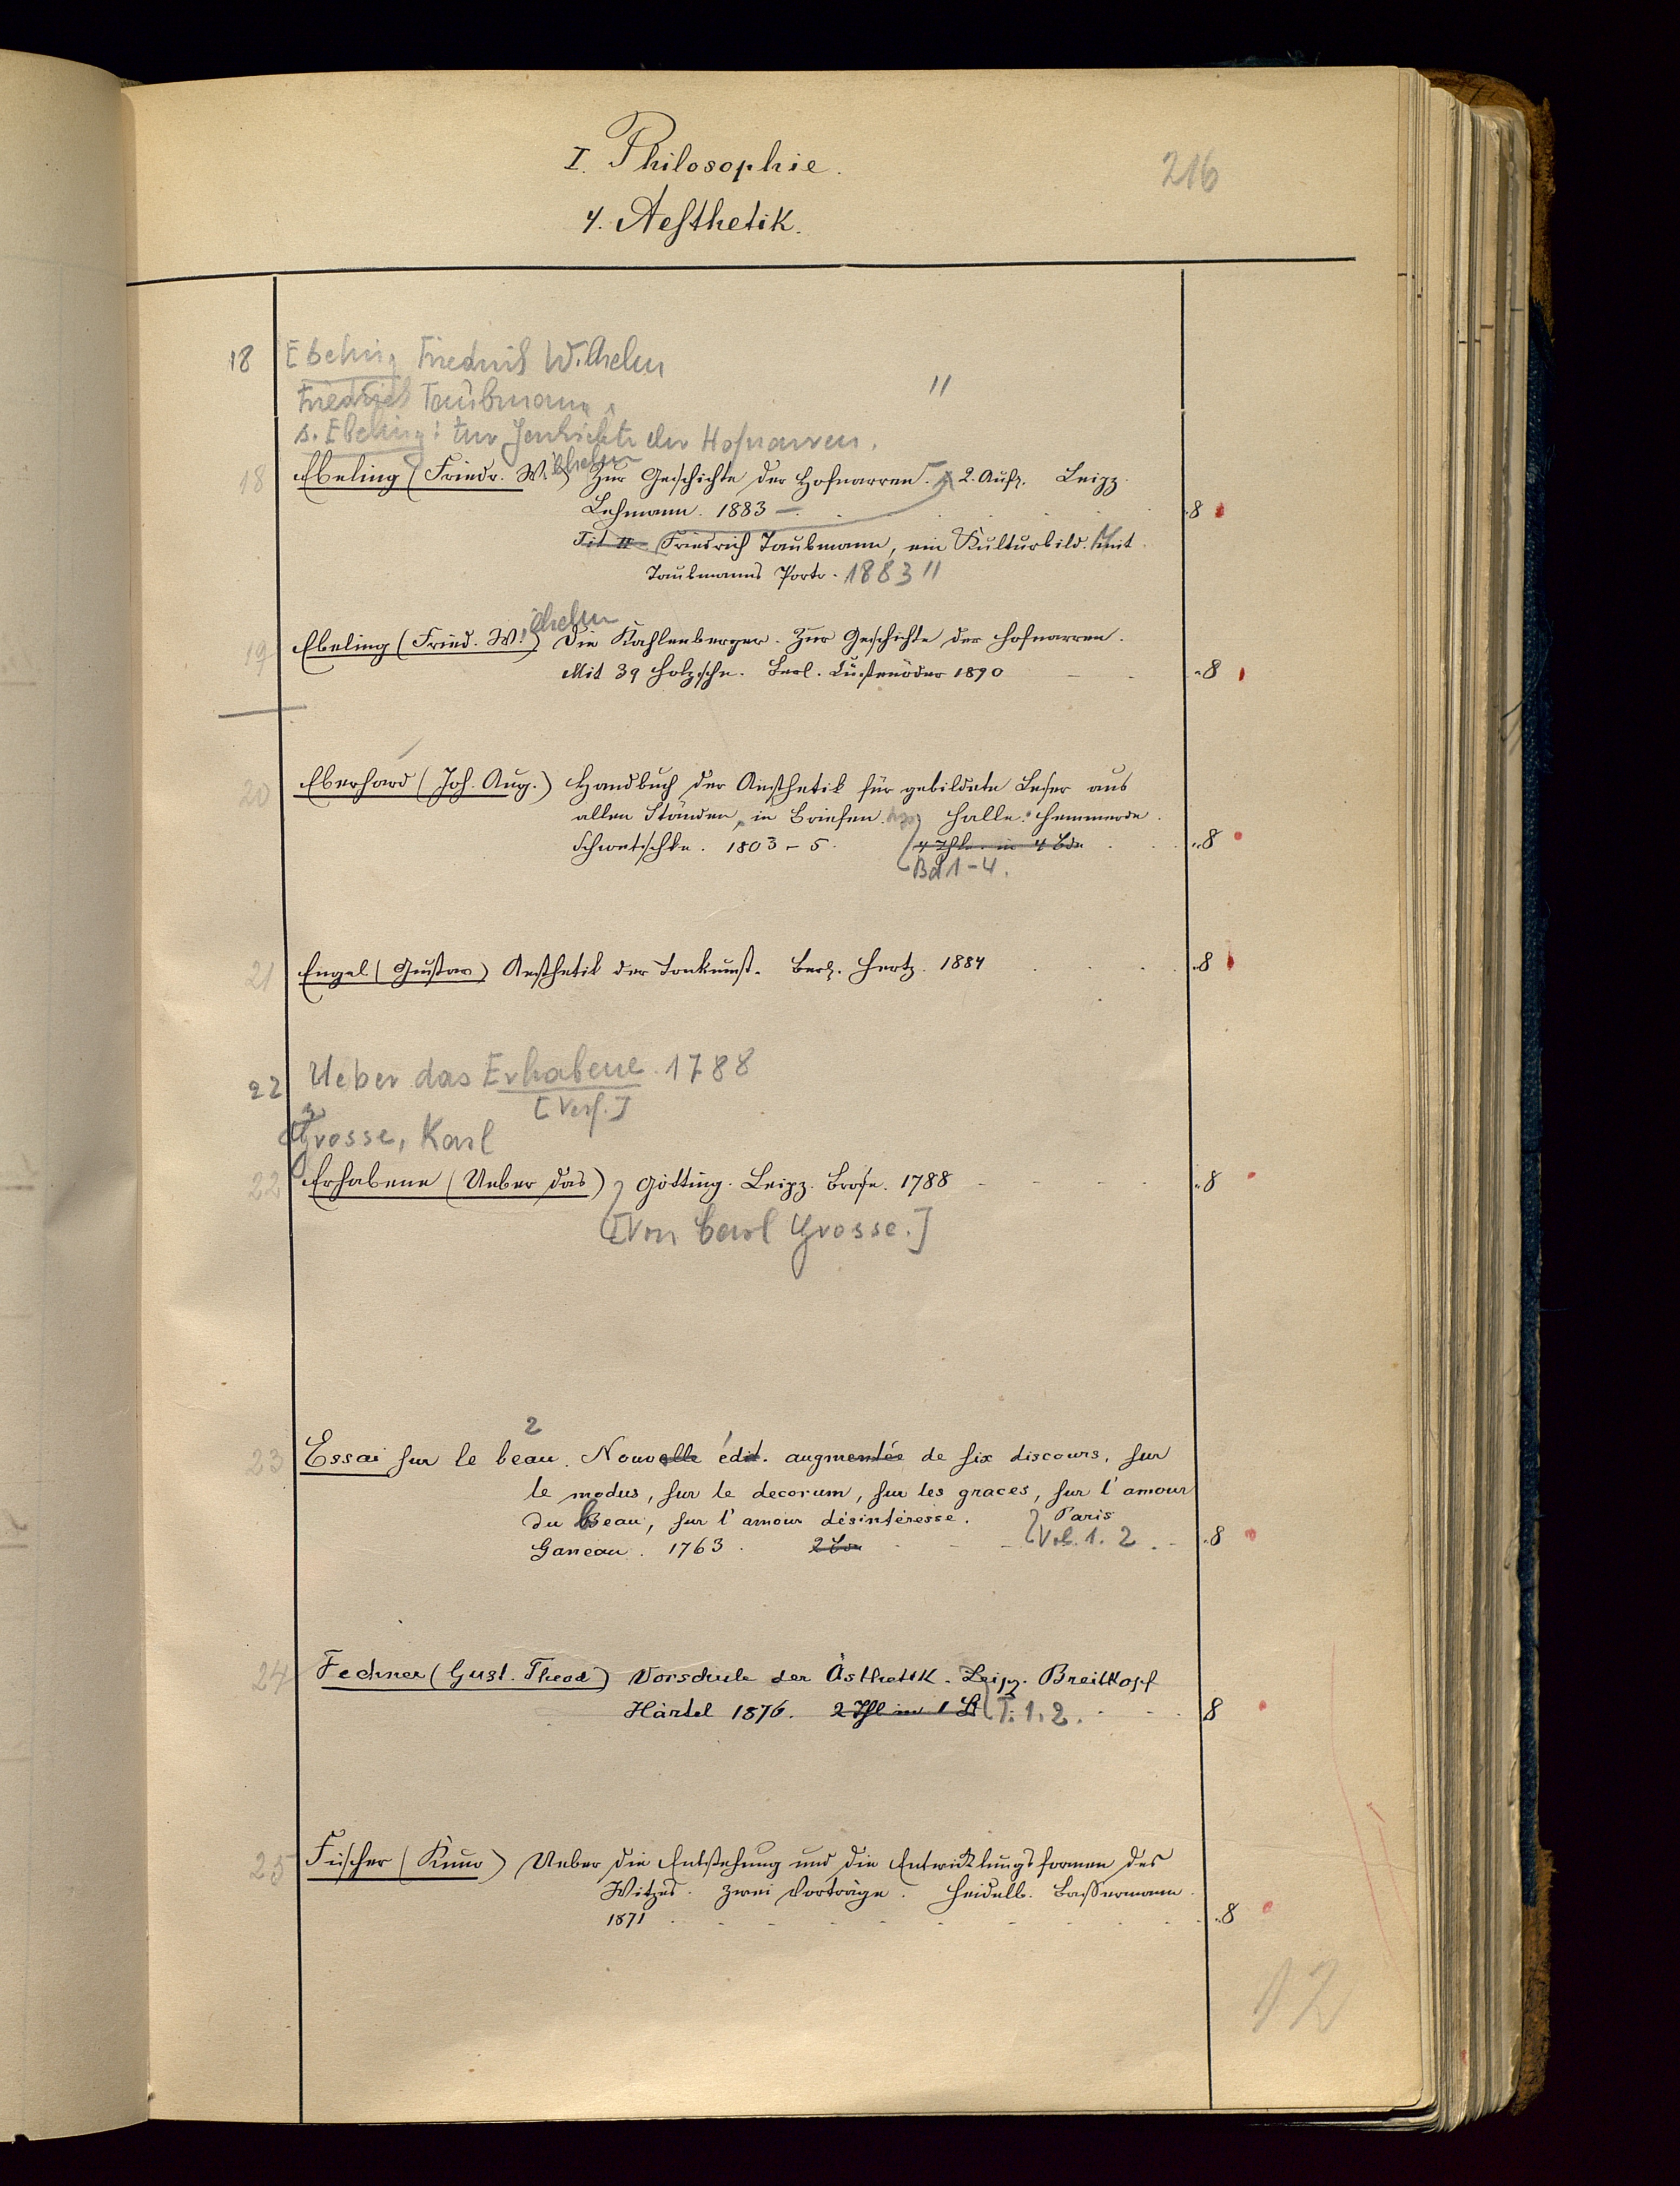 I. Philosophie.
216
4. Aesthetik.
18 Ebeling Friedrich Wilhelm
Friedrich Taubmann
s. Ebeling: Zur Geschichte der Hofnarren.
18 Ebeling (Friedr. Wilhelm) Zur Geschichte der Hofnarren. 2. Aufl. Leipz.
Lehmann. 1883 – 8
Tit II Friedrich Taubmann, ein Kulturbild. Mit
Taubmanns Portr. 1883 11
19 Ebeling (Fried. Wilhelm) Die Kahlenberger. Zur Geschichte der Hofnarren.
Mit 39 Holzschn. Berl. Lüstenöder 1890 8
20 Eberhard (Joh. Aug.) Handbuch der Aesthetik für gebildete Leser aus
allen Ständen, in Briefen. Halle. Hemmerde
Schwetschke. 1803–5. 4 Thle. in 4 Bde 8
Bd 1–4.
21 Engel (Gustav) Aesthetik der Tonkunst. Berl. Hertz. 1884 8
22 Ueber das Erhabene. 1788
[Verf.]
Grosse, Karl
22 Erhabene (Ueber das) Götting. Leipz. Brose. 1788 8
[Von Carl Grosse.]
2
23 Essai sur le beau. Nouvelle édit. augmentée de six discours, sur
le modus, sur le decorum, sur les graces, sur l'amour
du beau, sur l'amour désintéressé. Paris
Ganeau. 1763. 2 Bde Vol. 1. 2. 8
24 Fechner (Gust. Theod) Vorschule der Ästhetik. Leipz. Breitkopf
Härtel 1876. 2 Thl in 1 Bd T. 1. 2. 8
25 Fischer (Kuno) Ueber die Entstehung und die Entwicklungsformen des
Witzes. Zwei Vorträge. Heidelb. Bassermann.
1871 8
12